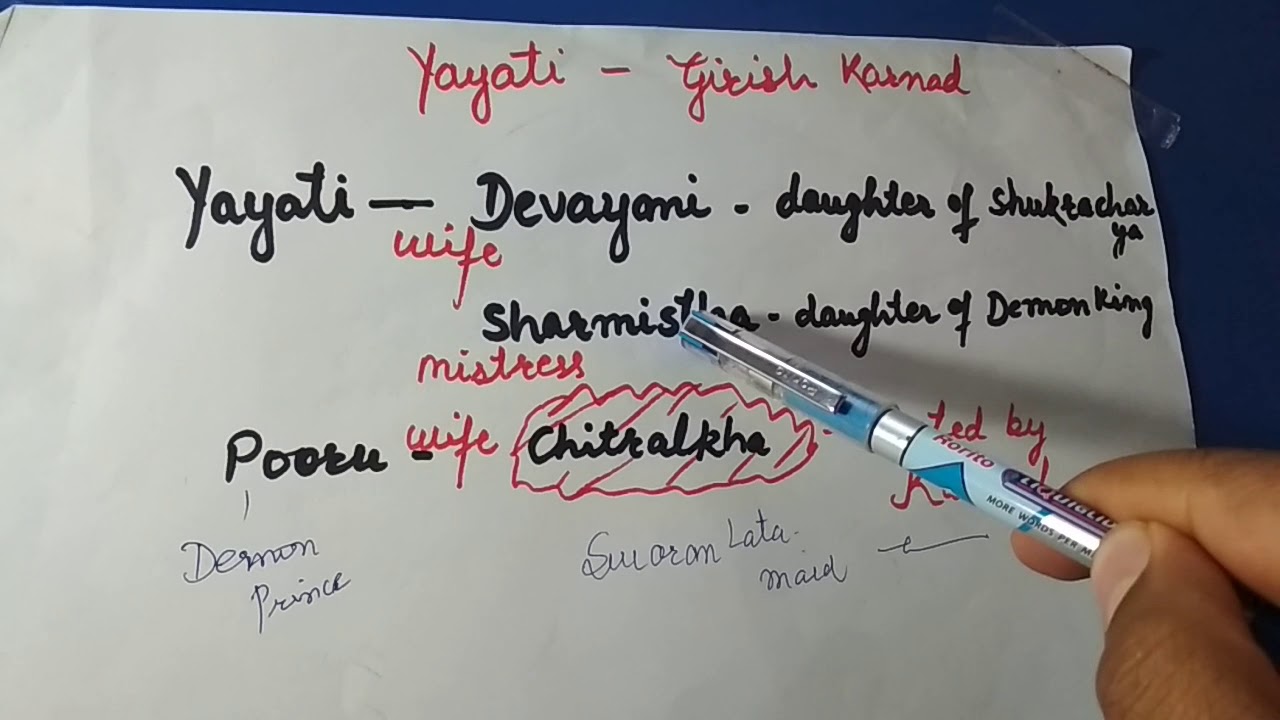 Yayati - Girish Karnad
Yayati — Devayani - daughter of Shukrachar
ya
wife
Sharmistha - daughter of Demon King
mistress
Pooru - wife Chitralkha - ted by
Demon
Prince
Swaran Lata -
maid
Rorito
LIQUIGLI
MORE WORDS PER M